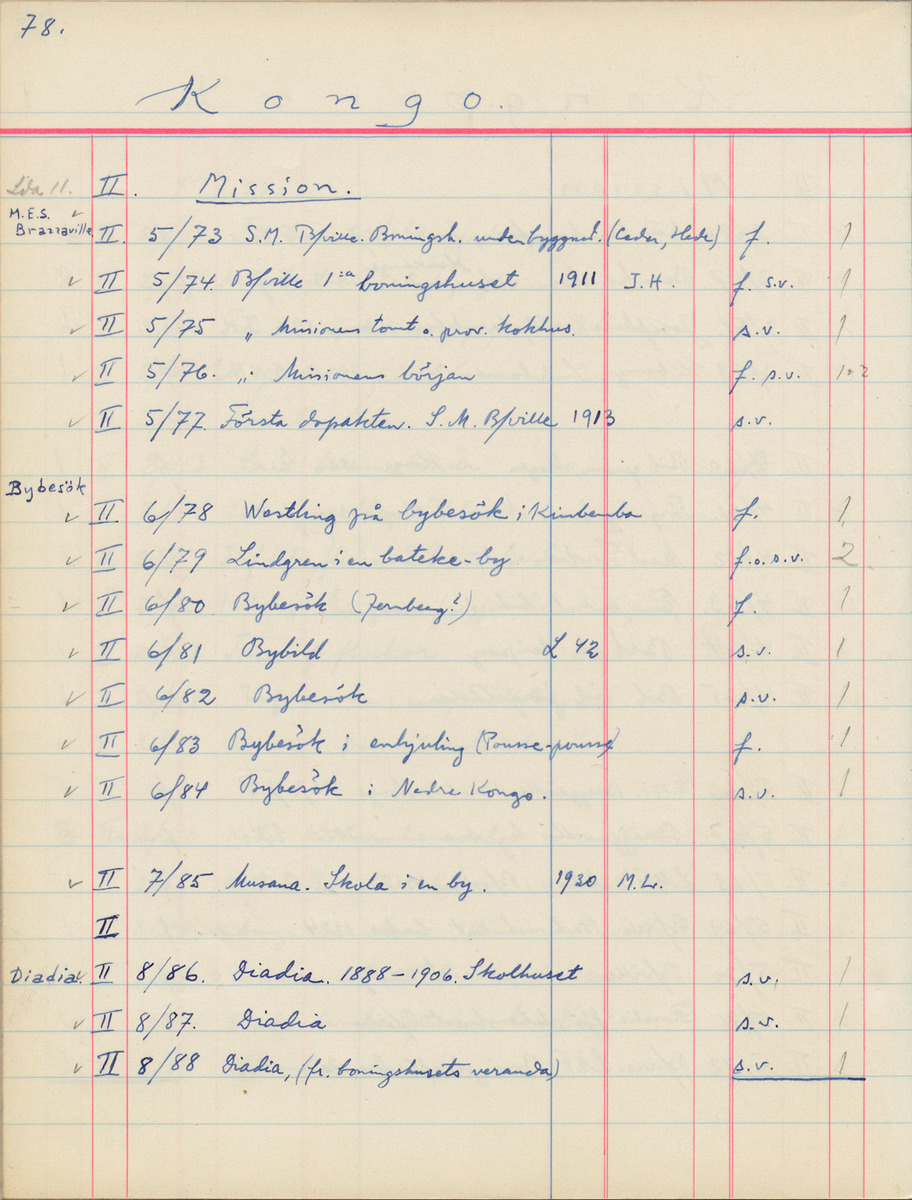 78.
Kongo.
Låda 11. II. Mission.
M.E.S. ✓
Brazzaville II. 5/73 S.M. B/ville. Boningsh. under byggnad. (Ceder, Hede) f. 1
✓ II 5/74. B/ville 1:a boningshuset 1911 J.H. f. s.v. 1
✓ II 5/75 „ Missionens tomt o. prov. kokhus. s.v. 1
✓ II 5/76. „ Missionens början f. s.v. 1+2
✓ II 5/77. Första dopakten. S.M. B/ville 1913 s.v.
Bybesök
✓ II 6/78 Westling på bybesök i Kimbemba f. 1
✓ II 6/79 Lindgren i en bateke-by f.o.s.v. 2
✓ II 6/80 Bybesök (Fernberg?) f. 1
✓ II 6/81 Bybild L 42 s.v. 1
✓ II 6/82 Bybesök s.v. 1
✓ II 6/83 Bybesök i enhjuling (Pousse-pousse) f. 1
✓ II 6/84 Bybesök i Nedre Kongo. s.v. 1
✓ II 7/85 Musana. Skola i en by. 1930 M.L.
II
Diadia. ✓ II 8/86. Diadia. 1888-1906. Skolhuset s.v. 1
✓ II 8/87. Diadia s.v. 1
✓ II 8/88 Diadia, (fr. boningshusets veranda) s.v. 1